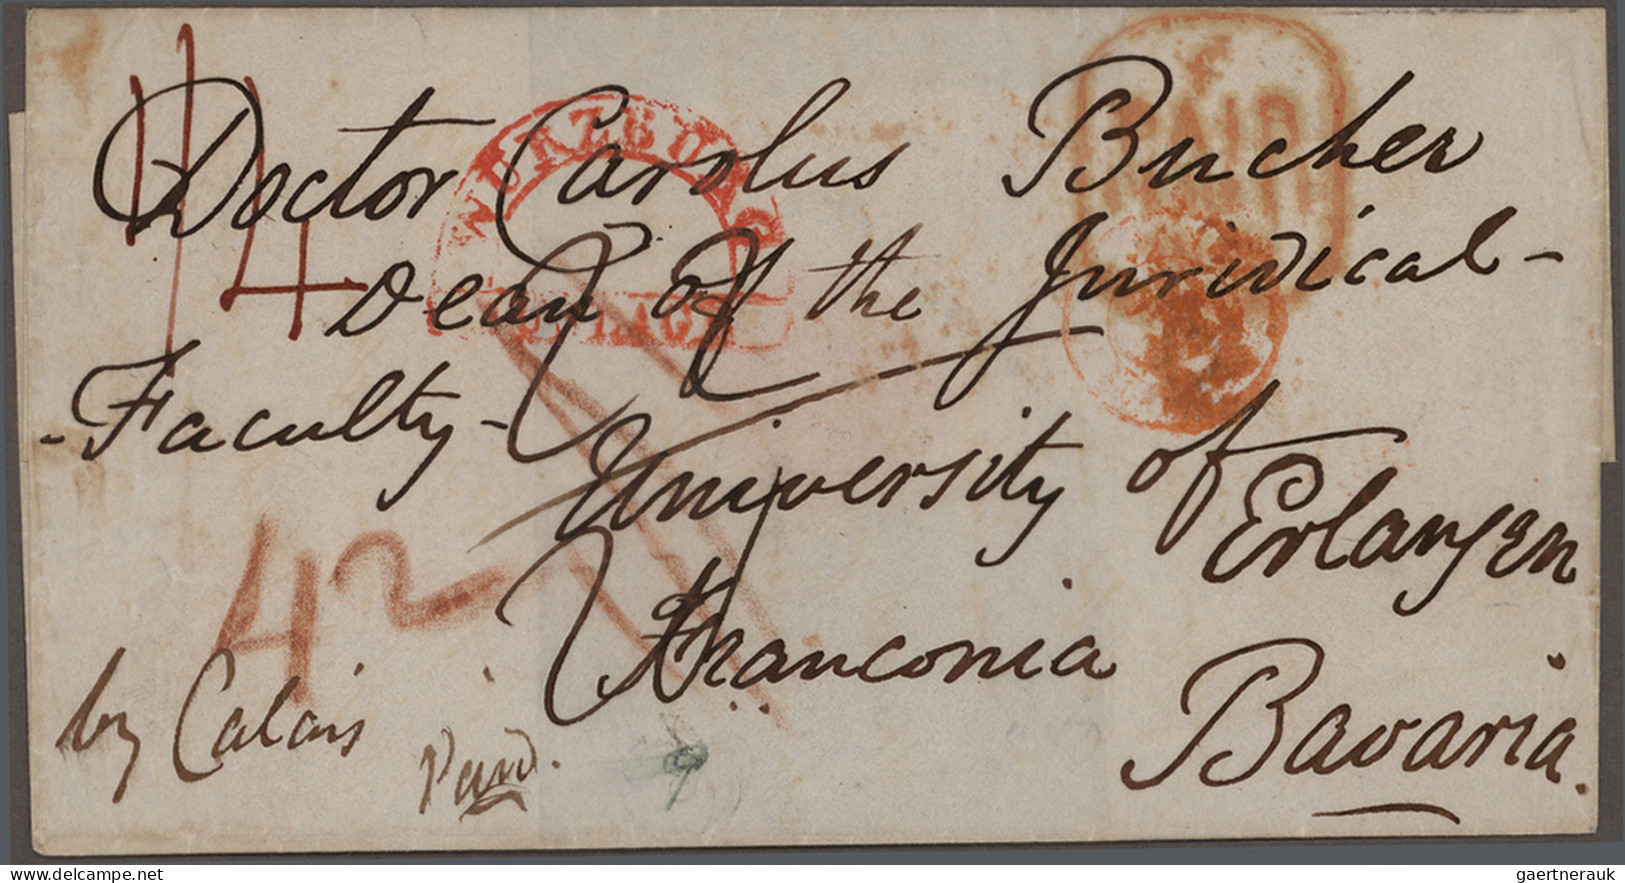 1/4
Doctor Carolus Bucher
Dean of the Juridical-
-Faculty-
University of
Erlangen
Franconia
Bavaria.
42
by Calais
Paid.
PAID
gaertnerauk